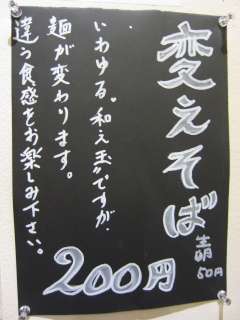 変えそば
半玉 50円
いわゆる。和え玉〟ですが、
麺が変わります。
違う食感をお楽しみ下さい。
200円